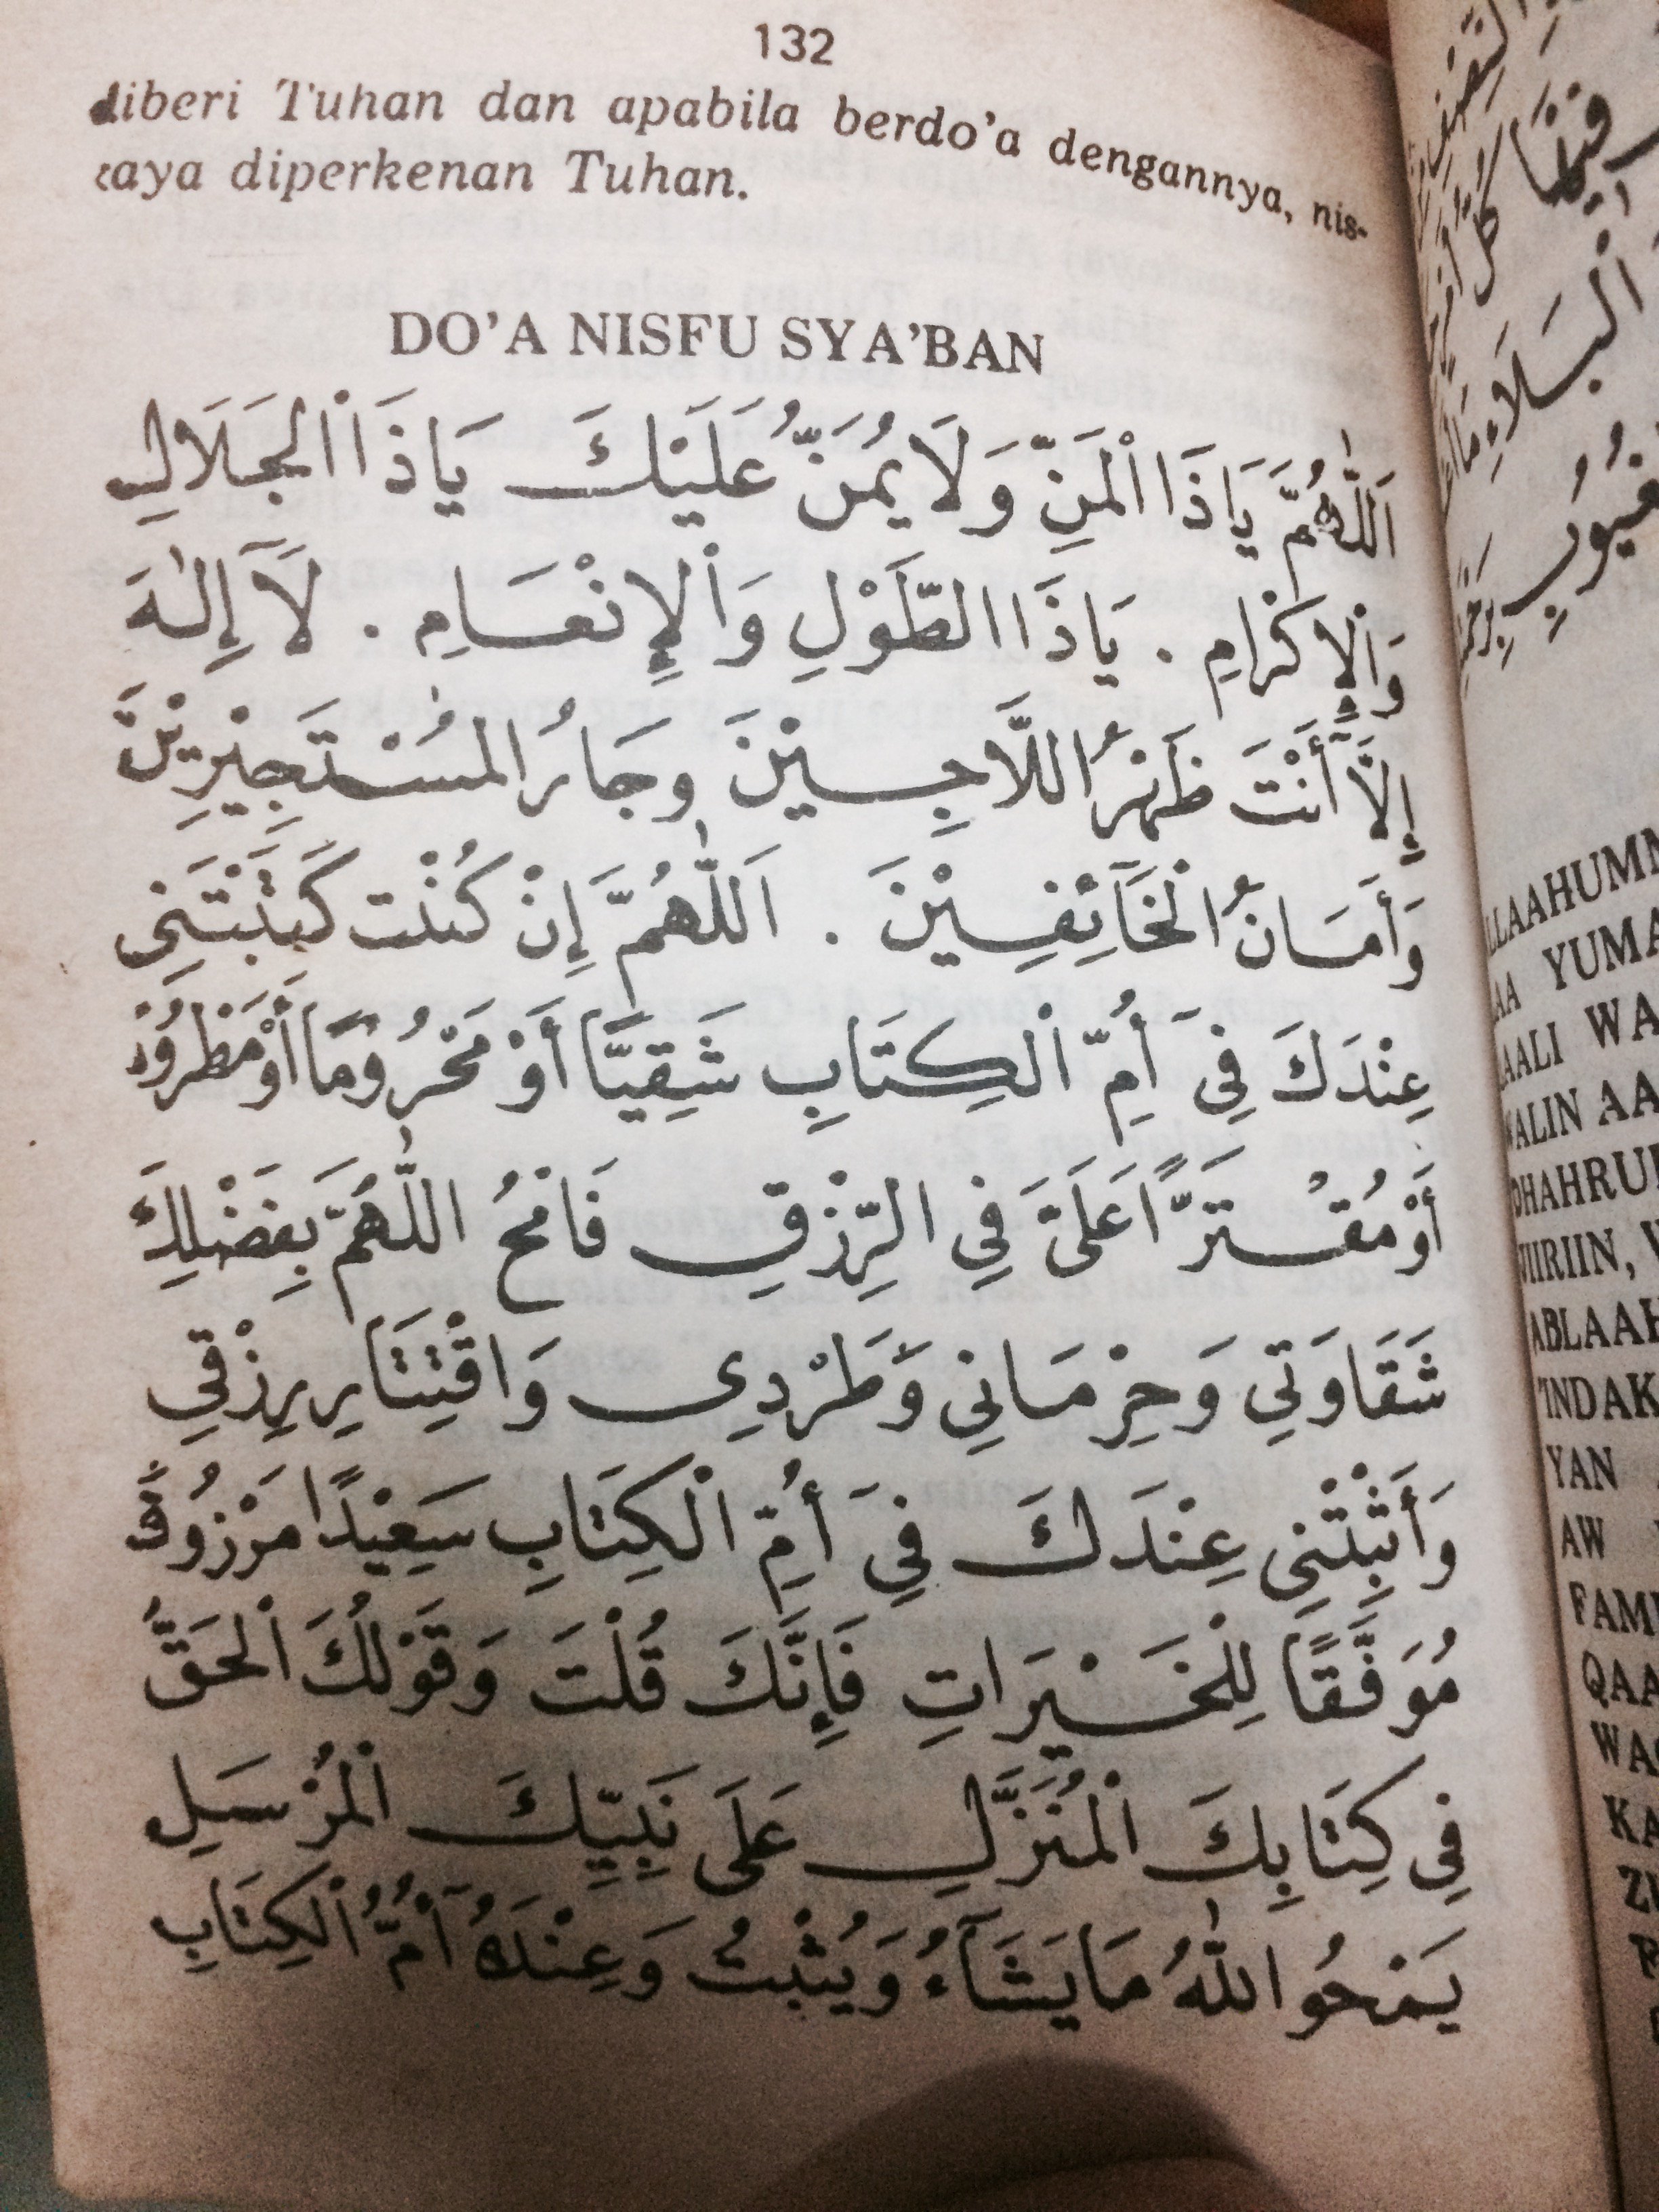 132
diberi Tuhan dan apabila berdo'a dengannya, nis-
caya diperkenan Tuhan.
DO'A NISFU SYA'BAN
اَللّٰهُمَّ يَاذَا الْمَنِّ وَلَا يُمَنُّ عَلَيْكَ يَاذَا الْجَلَالِ
وَالْإِكْرَامِ . يَاذَا الطَّوْلِ وَالْإِنْعَامِ . لَآ إِلٰهَ
إِلَّآ أَنْتَ ظَهْرُ اللَّاجِيْنَ وَجَارُ الْمُسْتَجِيْرِيْنَ
وَأَمَانُ الْخَآئِفِيْنَ . اَللّٰهُمَّ إِنْ كُنْتَ كَتَبْتَنِى
عِنْدَكَ فِىَ أُمِّ الْكِتَابِ شَقِيًّا أَوْ مَحْرُوْمًا أَوْ مَطْرُوْدًا
أَوْ مُقْتَرًّا عَلَىَّ فِي الرِّزْقِ فَامْحُ اللّٰهُمَّ بِفَضْلِكَ
شَقَاوَتِي وَحِرْمَانِي وَطَرْدِى وَاقْتِتَارِ رِزْقِي
وَأَثْبِتْنِي عِنْدَكَ فِىَ أُمِّ الْكِتَابِ سَعِيْدًا مَرْزُوْقًا
مُوَفَّقًا لِلْخَيْرَاتِ فَإِنَّكَ قُلْتَ وَقَوْلُكَ الْحَقُّ
فِي كِتَابِكَ الْمُنَزَّلِ عَلَى نَبِيِّكَ الْمُرْسَلِ
يَمْحُو اللّٰهُ مَا يَشَآءُ وَيُثْبِتُ وَعِنْدَهُ أُمُّ الْكِتَابِ
الْبَلَاءِ
YUMA
WA
AW